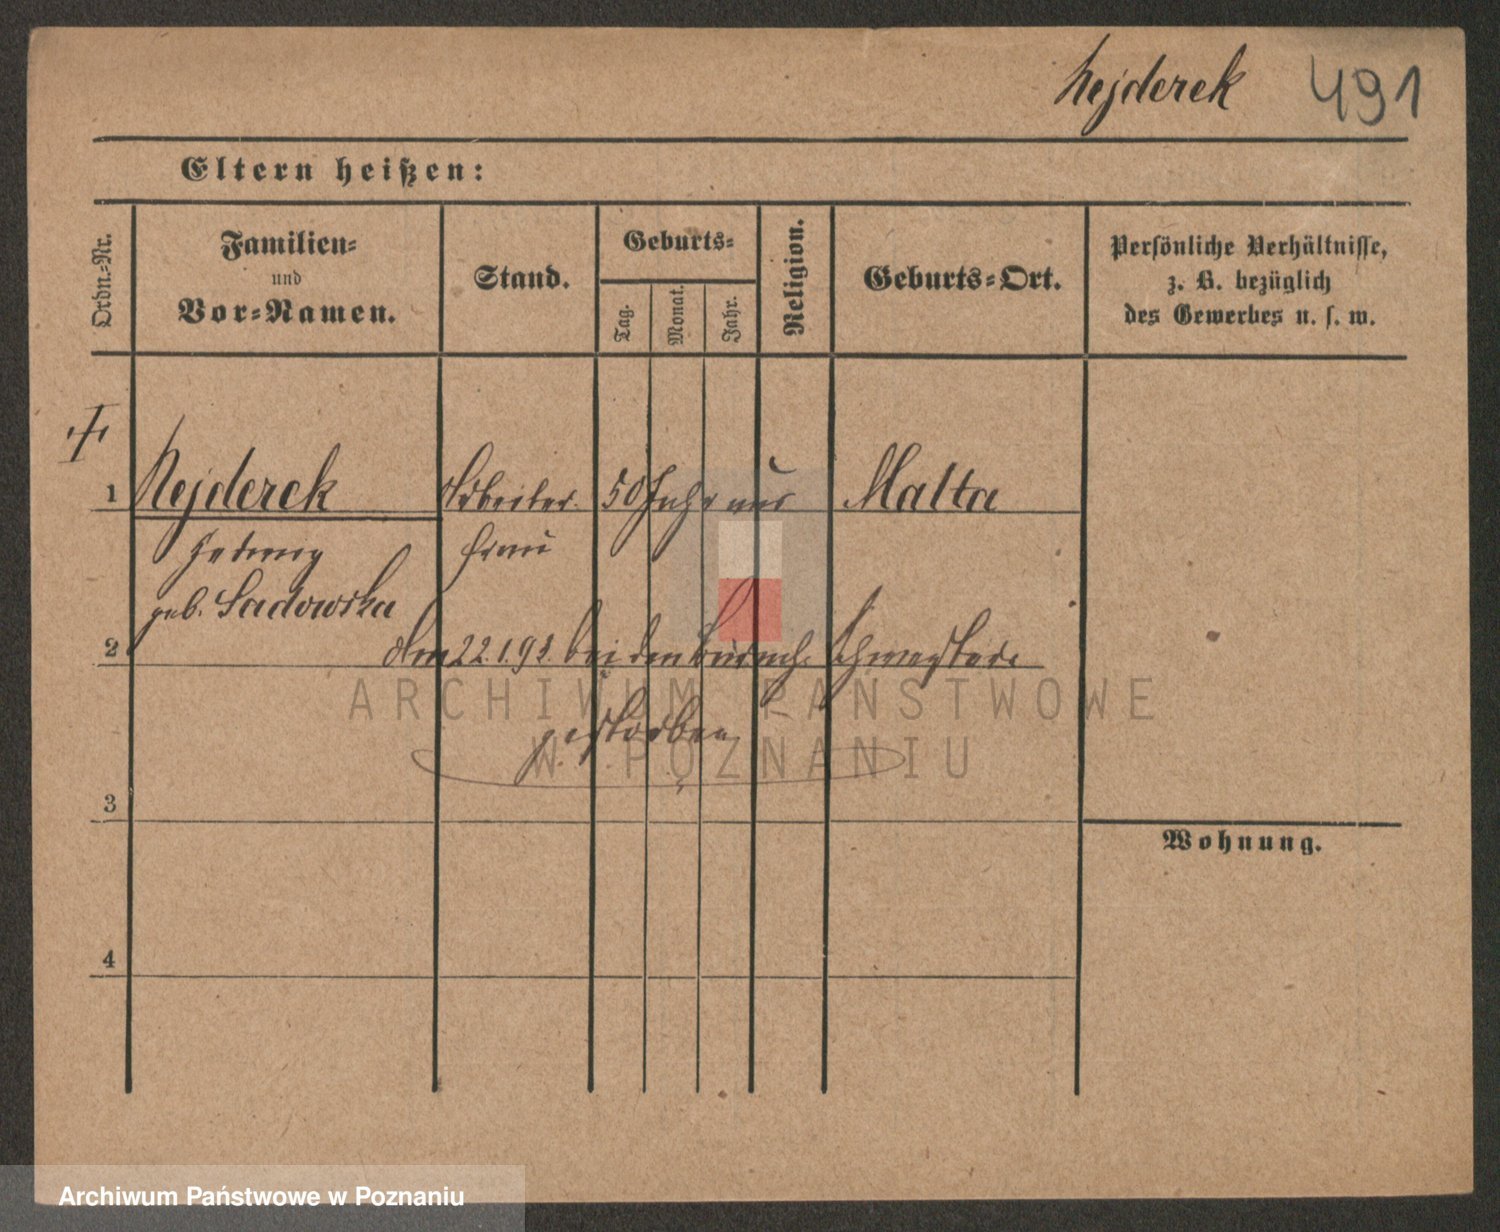 Nejderek 491
Eltern heißen:
Ordn.-Nr.
Familien-
und
Vor-Namen.
Stand.
Geburts-
Tag.
Monat.
Jahr.
Religion.
Geburts-Ort.
Persönliche Verhältnisse,
z. B. bezüglich
des Gewerbes u. s. w.
1 Nejderek Arbeiter 50 Jahr aus Malta
Hedwig frau
geb. Sadowska
2 Am 22.1.93. bei den barmh. Schwestern
gestorben
3
Wohnung.
4
ARCHIWUM PAŃSTWOWE
W POZNANIU
Archiwum Państwowe w Poznaniu